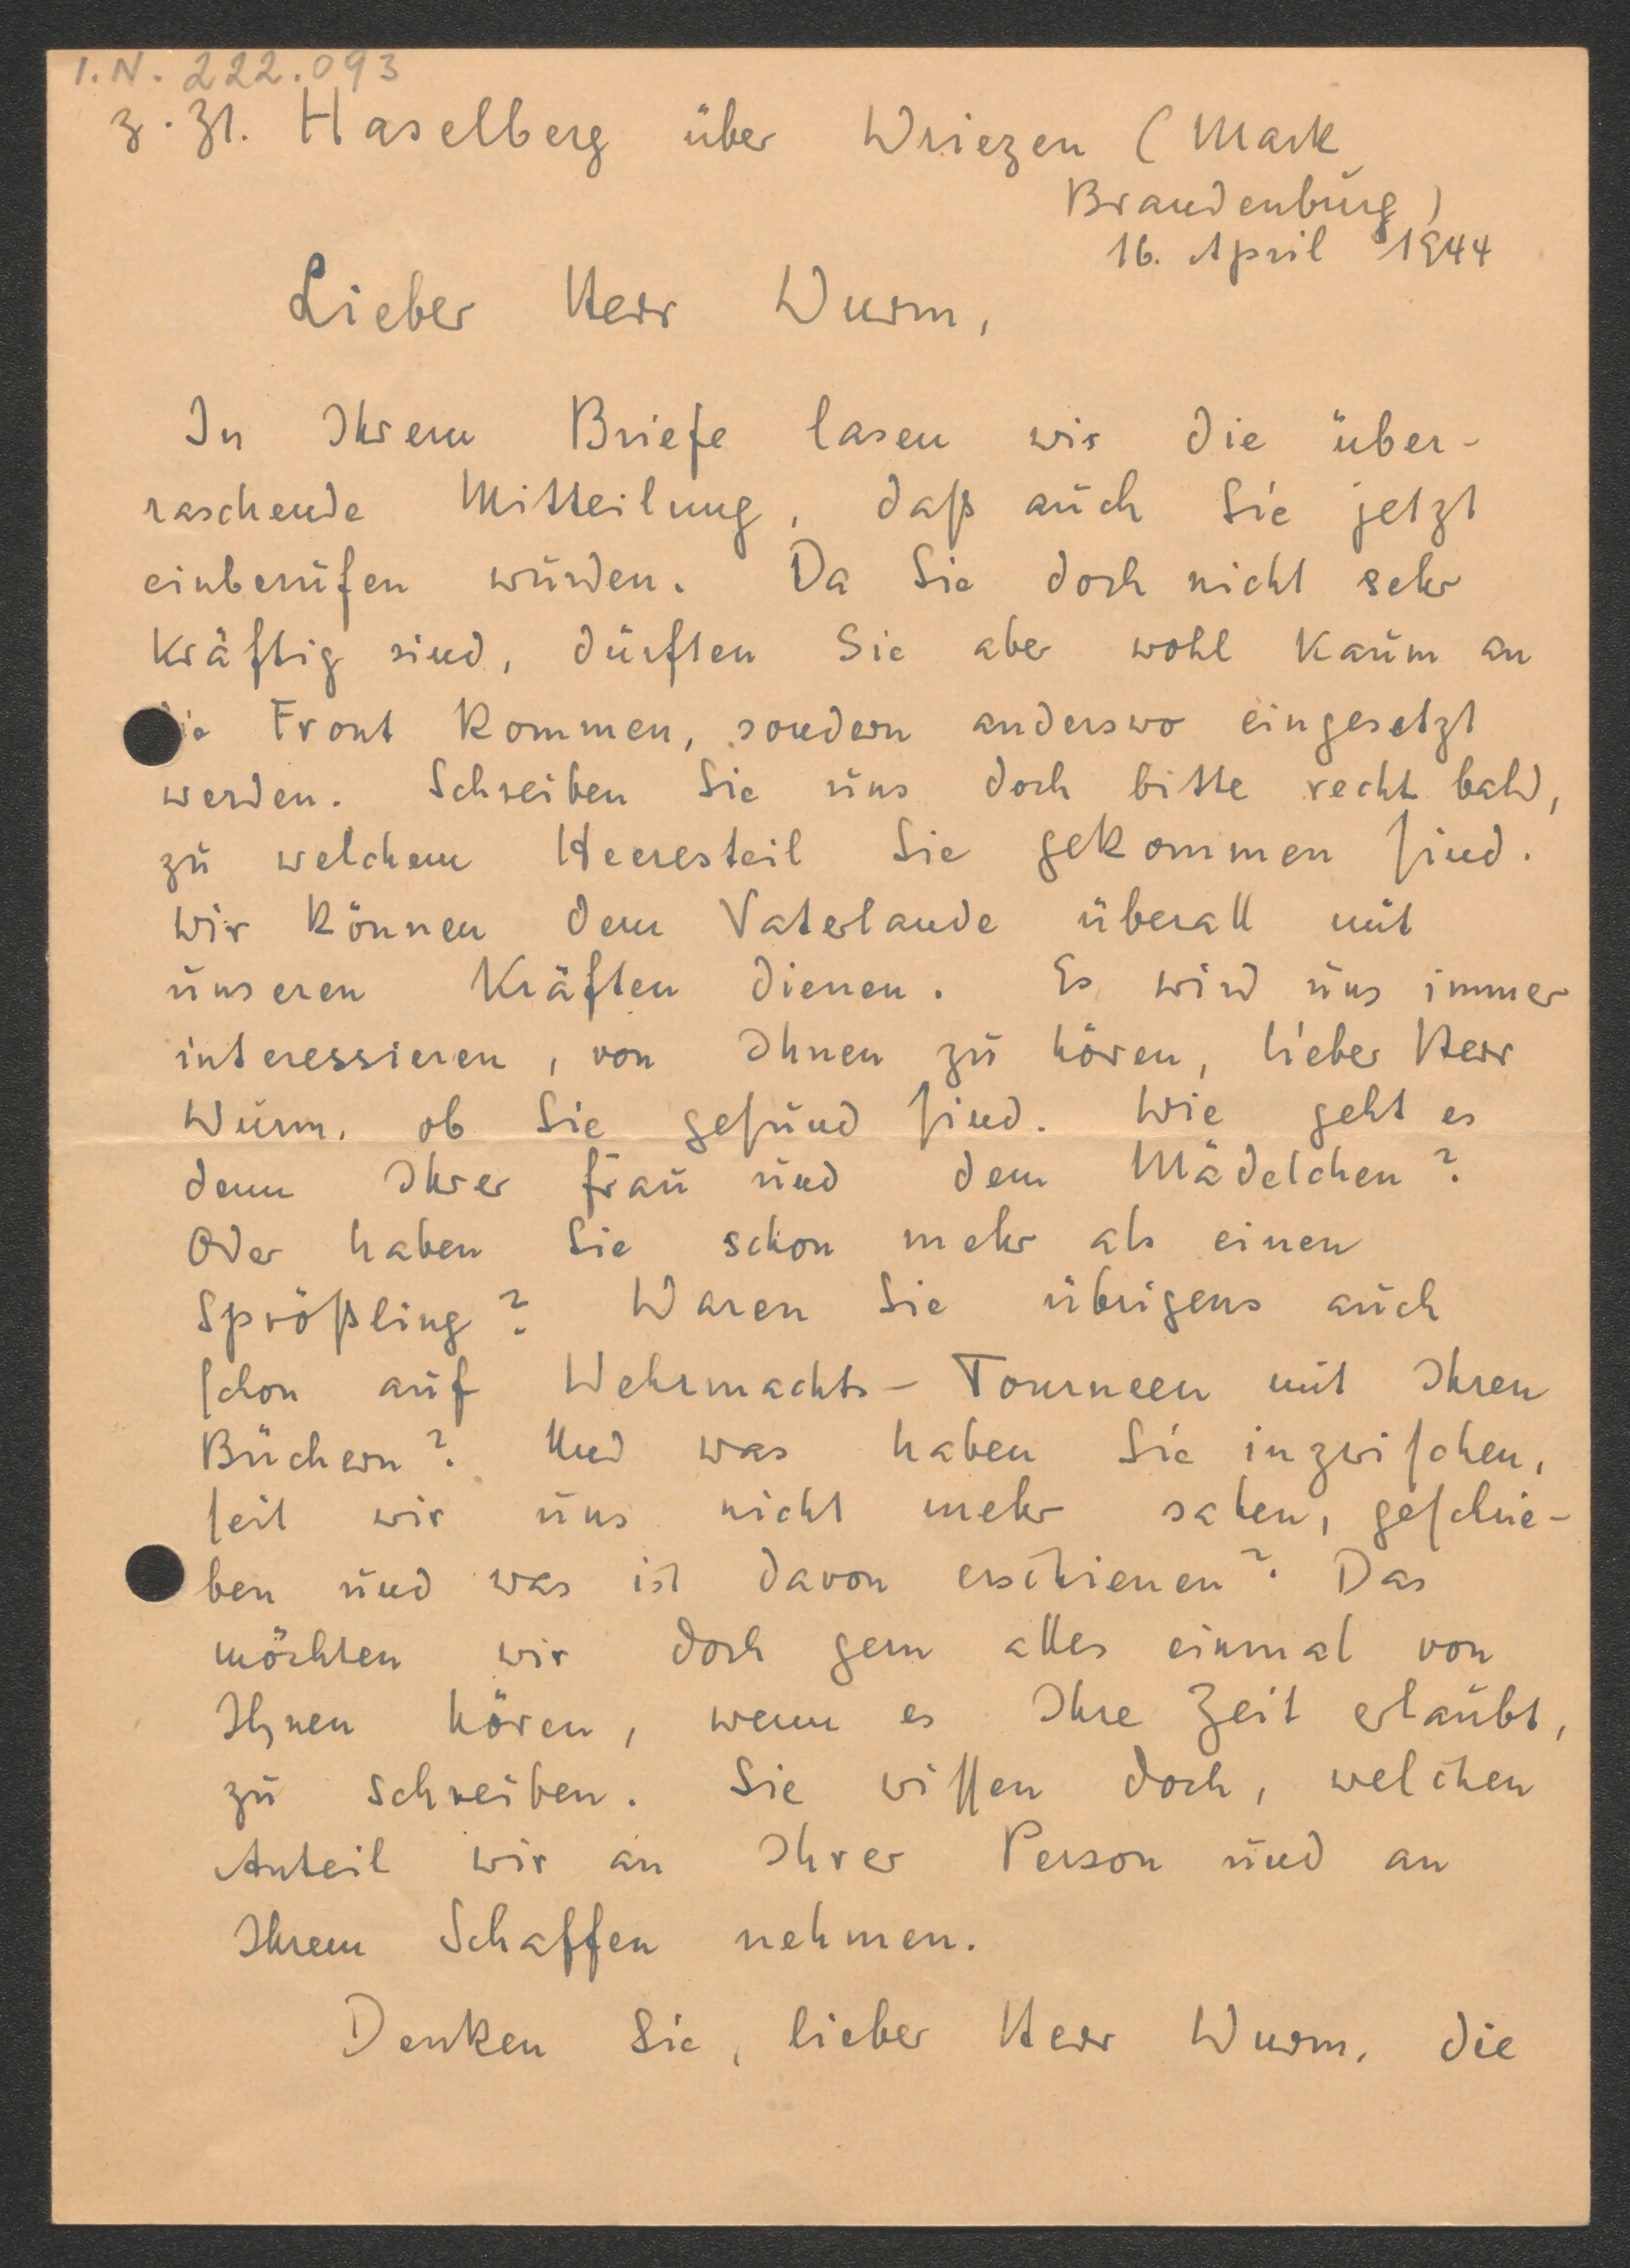 I.N. 222.093
z. Zt. Haselberg über Wriezen (Mark
Brandenburg)
16. April 1944
Lieber Herr Wurm,
In Ihrem Briefe lasen wir die über-
raschende Mitteilung, daß auch Sie jetzt
einberufen würden. Da Sie doch nicht sehr
kräftig sind, dürften Sie aber wohl kaum an
die Front kommen, sondern anderswo eingesetzt
werden. Schreiben Sie uns doch bitte recht bald,
zu welchem Heeresteil Sie gekommen sind.
Wir können dem Vaterlande überall mit
unseren Kräften dienen. Es wird uns immer
interessieren, von Ihnen zu hören, lieber Herr
Wurm, ob Sie gesund sind. Wie geht es
denn Ihrer Frau und dem Mädelchen?
Oder haben Sie schon mehr als einen
Sprößling? Waren Sie übrigens auch
schon auf Wehrmachts-Tourneen mit Ihren
Büchern? Und was haben Sie inzwischen,
seit wir uns nicht mehr sahen, geschrie-
ben und was ist davon erschienen? Das
möchten wir doch gern alles einmal von
Ihnen hören, wenn es Ihre Zeit erlaubt,
zu schreiben. Sie wissen doch, welchen
Anteil wir an Ihrer Person und an
Ihrem Schaffen nehmen.
Denken Sie, lieber Herr Wurm, die